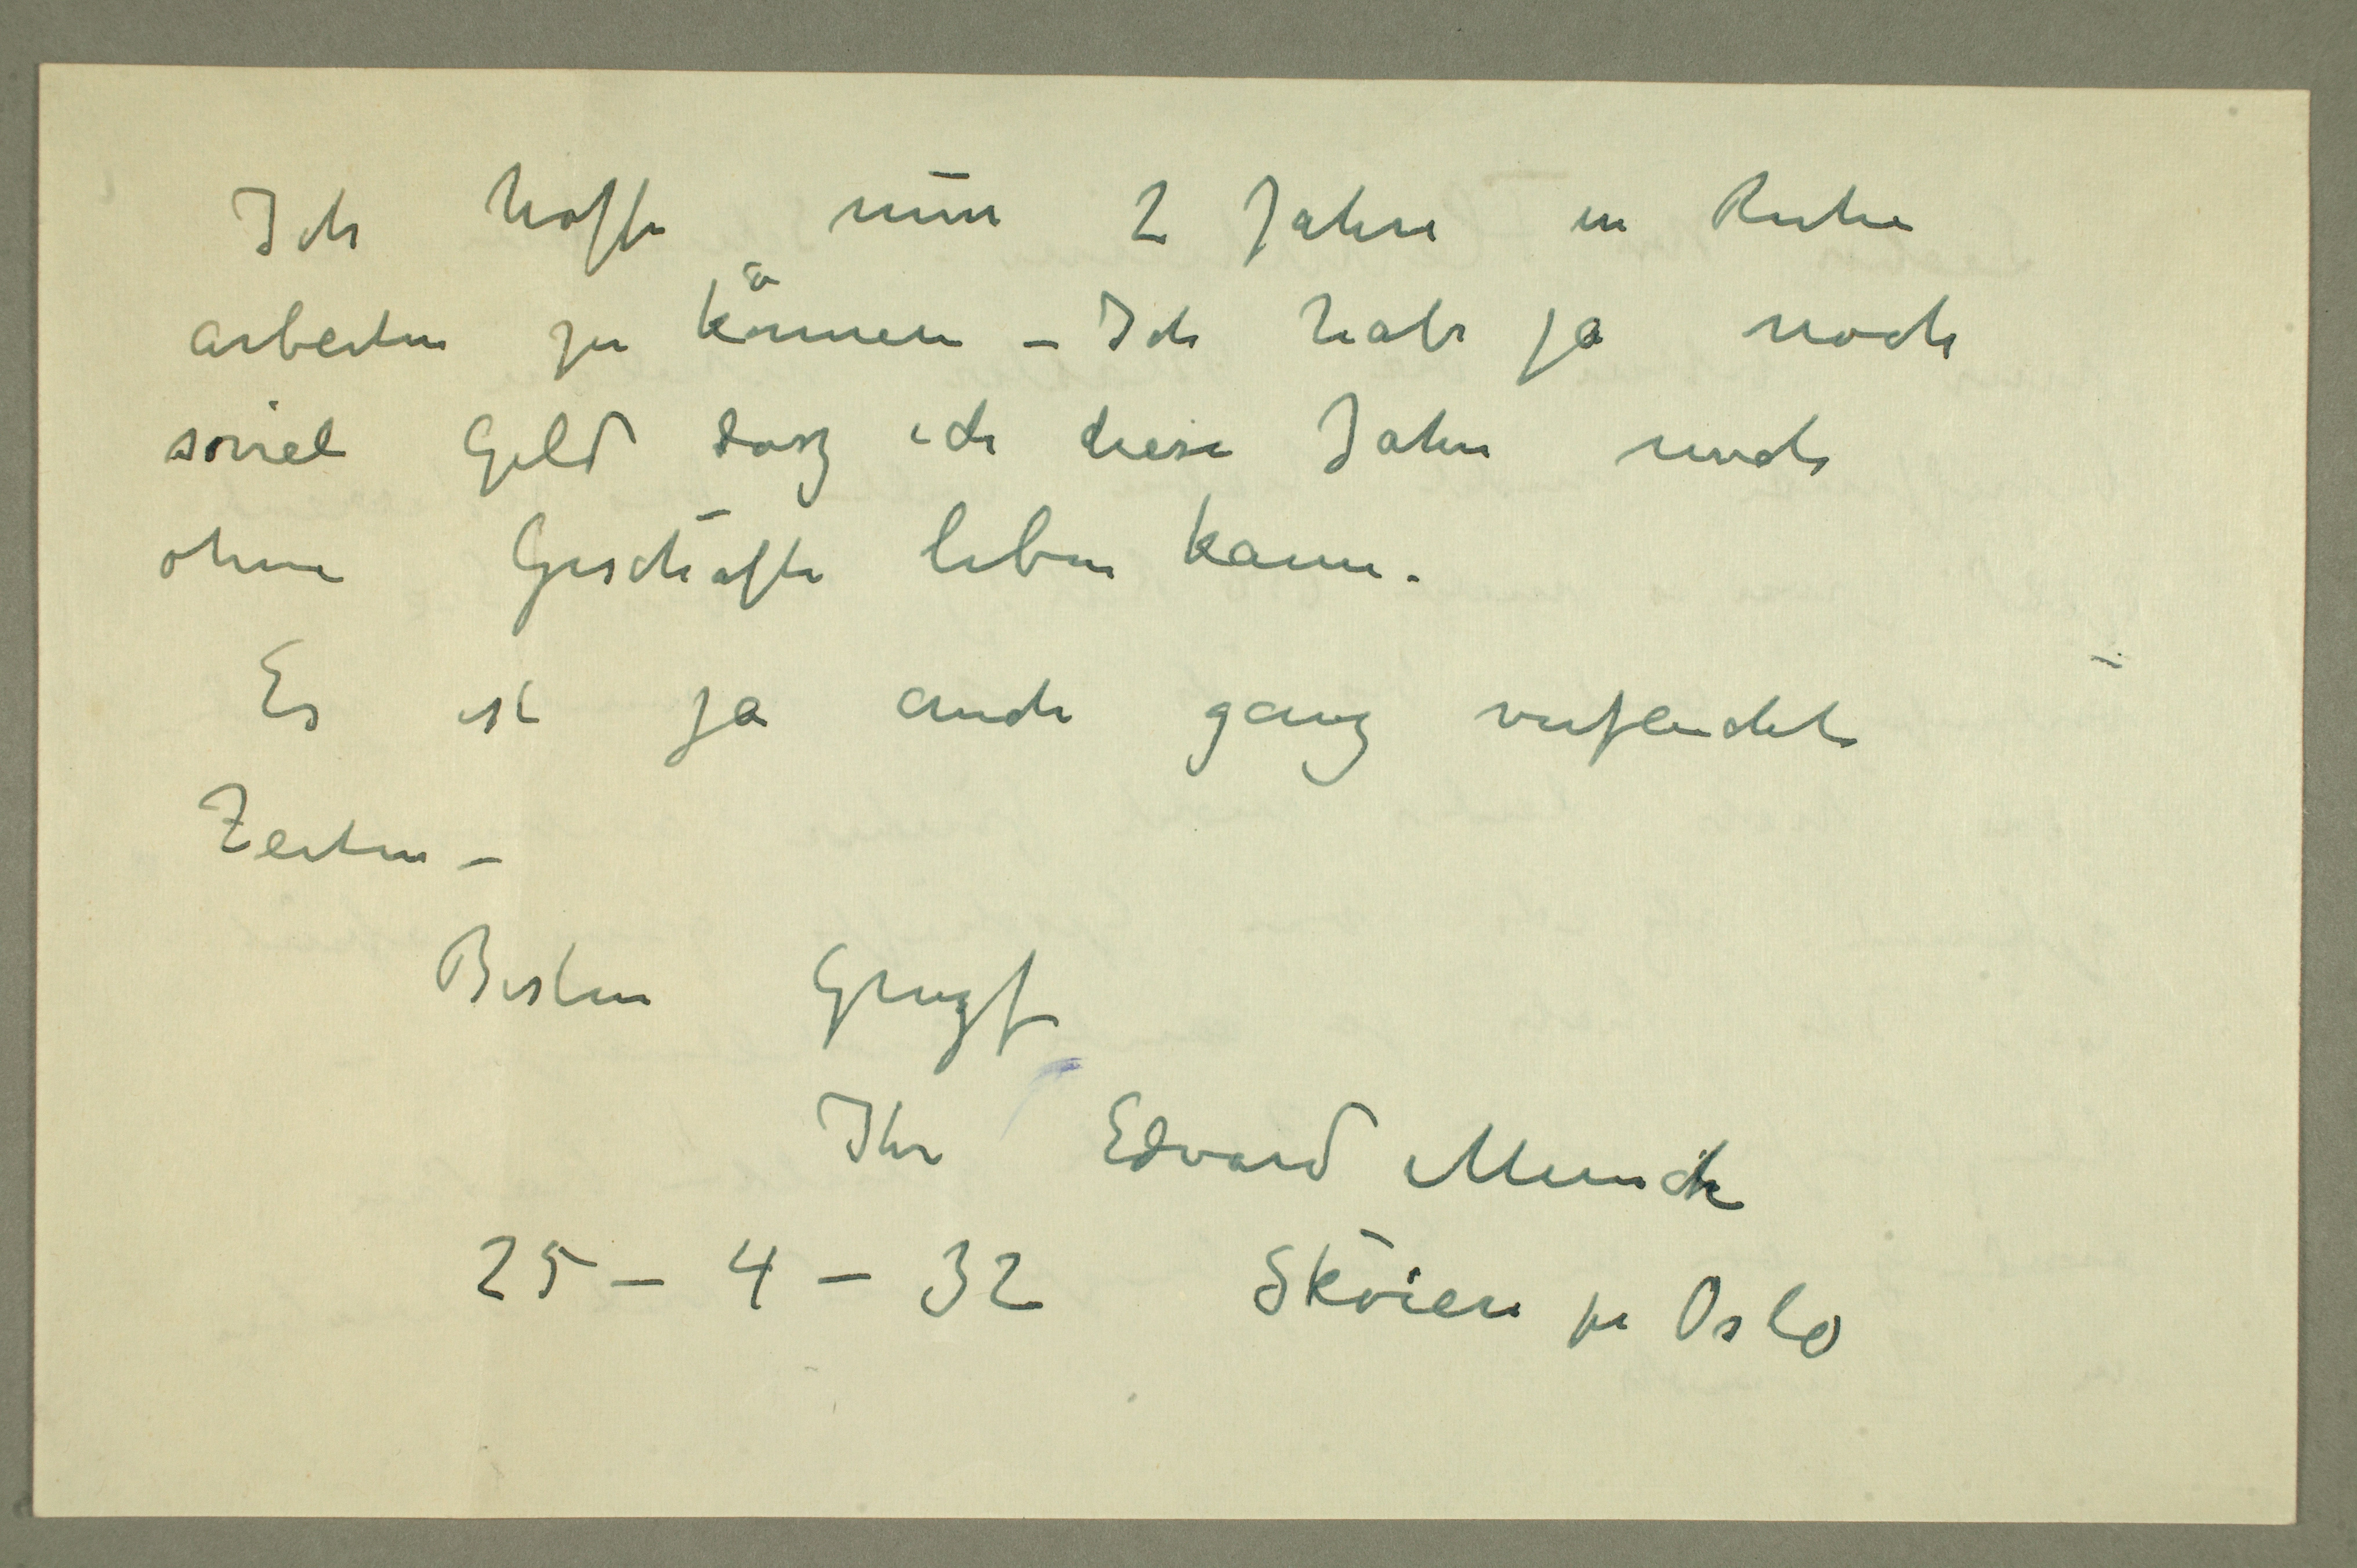 Ich hoffe nun 2 Jahre in Ruhe
arbeiten zu können – Ich habe ja noch
soviel Geld dasz ich diese Jahre noch
ohne Geschäfte leben kann.
Es ist ja auch ganz
Zeiten –
Besten
Ihr Edvard Munch
25 – 4 – 32 Sköien pr Oslo